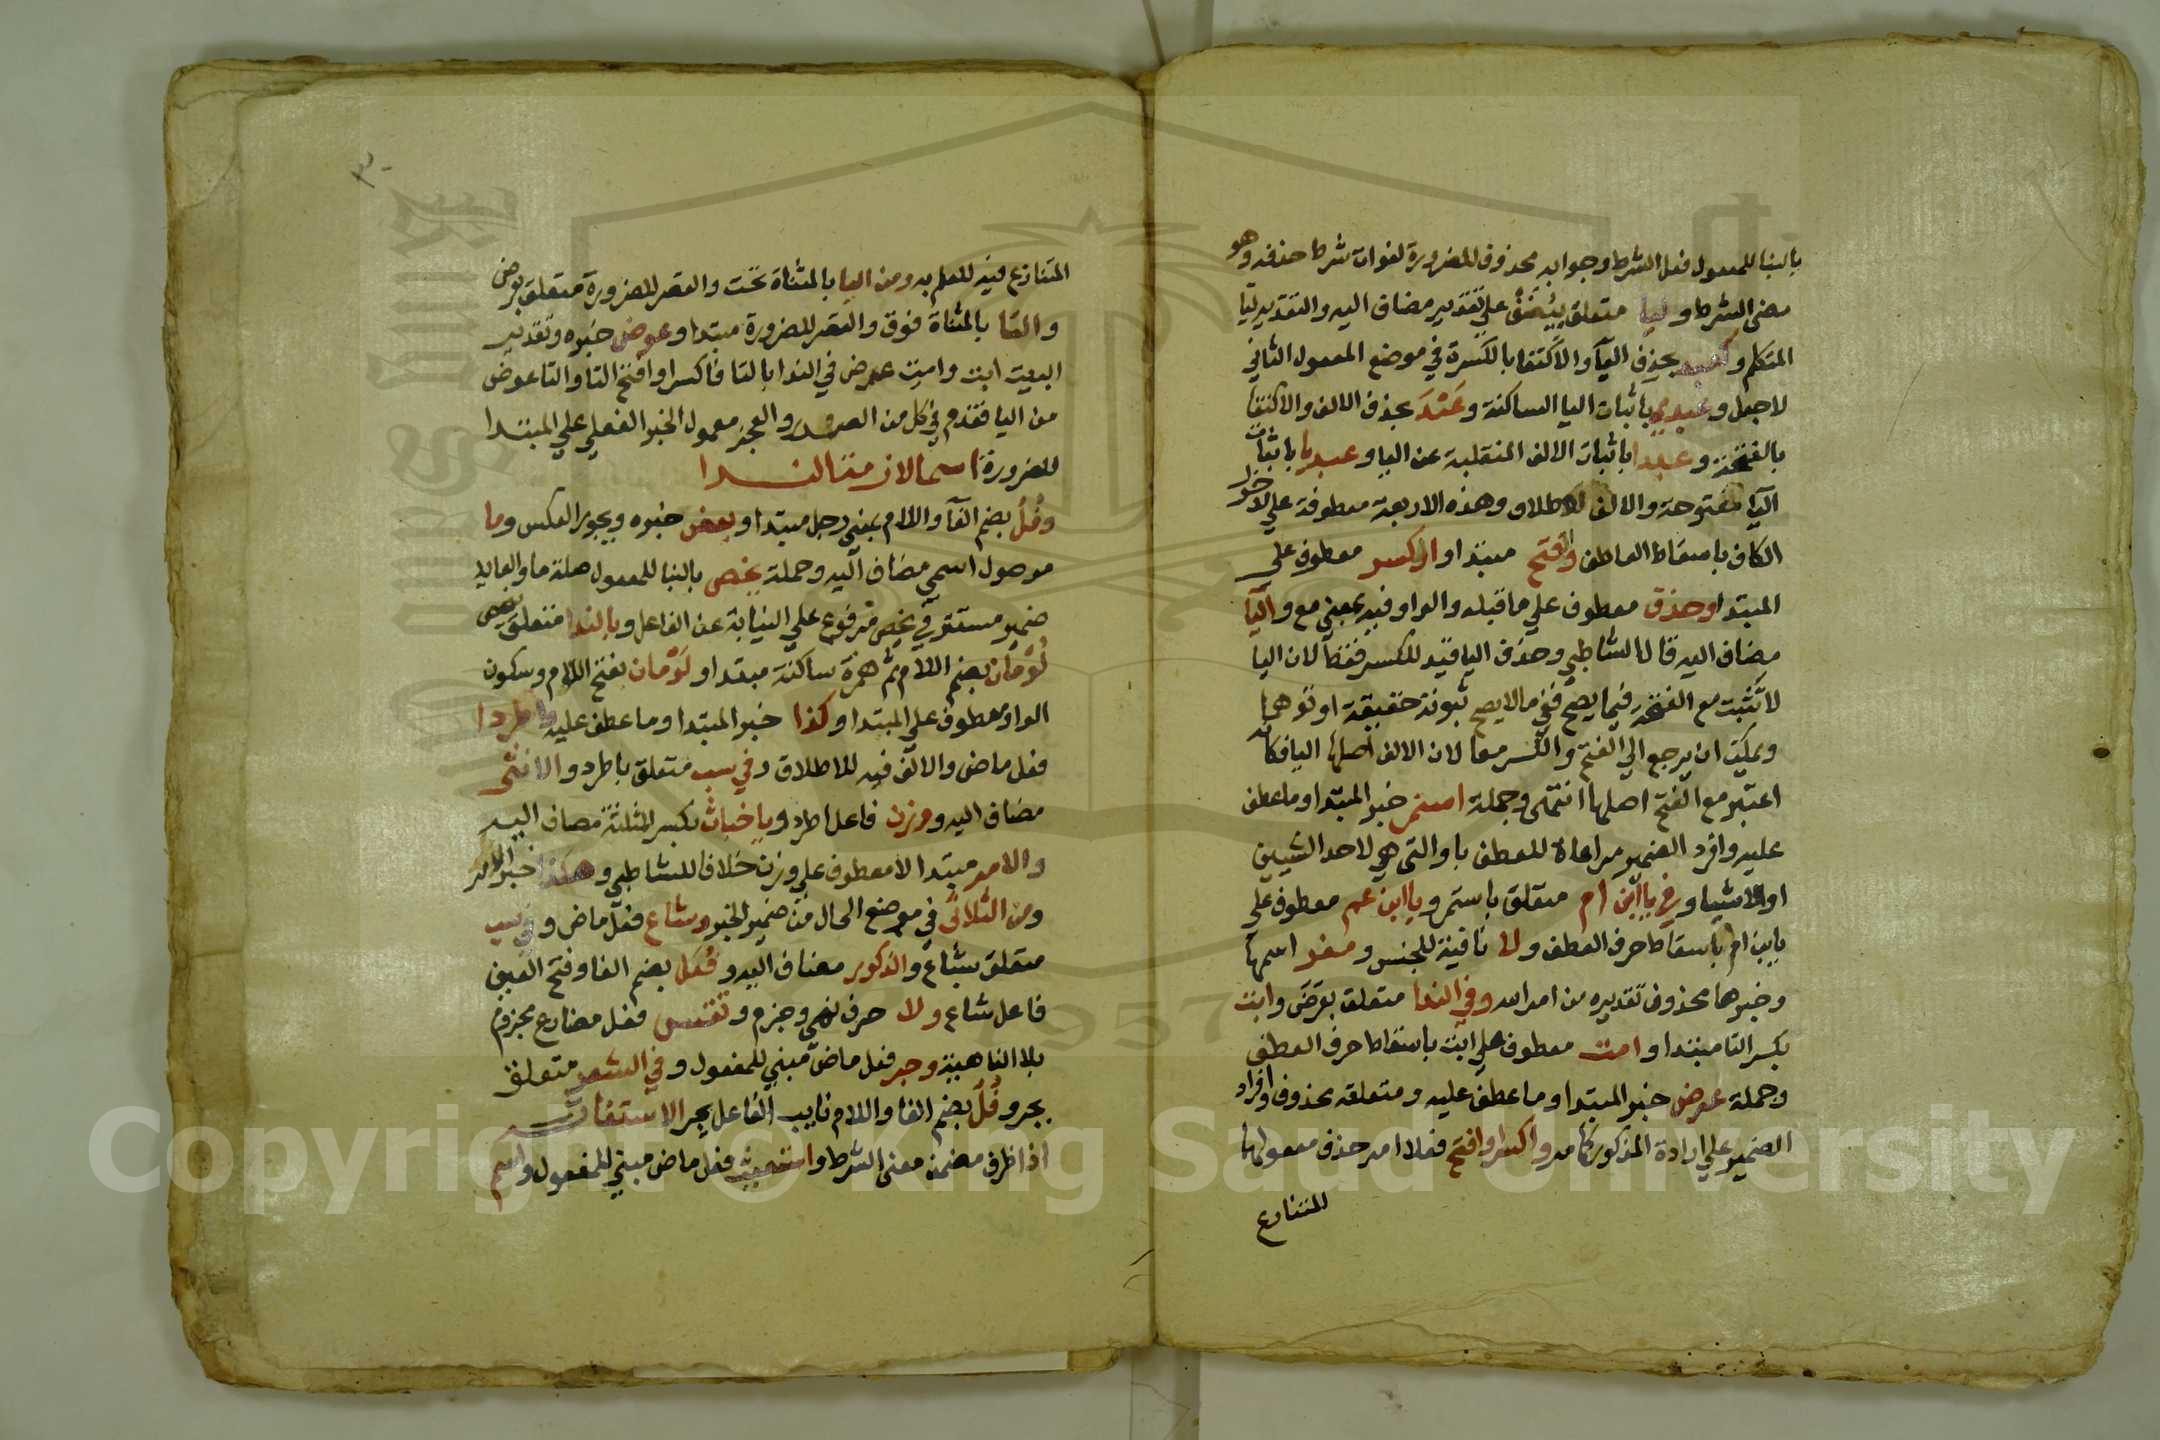 بالبنا للمفعول فعل الشرط وجوابه محذوف للضرورة لفوات شرط حذفه وهو
مضى الشرط وليا متعلق بيضف على تقدير مضاف اليه والتقدير ليا
المتكلم وكعبد بحذف اليآ والاكتفا بالكسرة في موضع المفعول الثاني
لاجعل وعبدي باثبات اليا الساكنة وعبد بحذف الالف والاكتفا
بالفتحة وعبدا باثبات الالف المنقلبة عن اليا وعبديا باثبات
اليآ مفتوحة والالف للاطلاق وهذه الاربعة معطوفة على
الكاف باسقاط العاطف وافتح مبتدا واو كسر معطوف على
المبتدا وحذف معطوف على ما قبله والواو فيه بمعنى مع واليآ
مضاف اليه قال الشاطبي وحذف اليا قيد للكسر فقط لان اليا
لا تثبت مع الفتحة فيما يصح ففي ما لا يصح ثبوته حقيقة او توهما
ويمكن ان يرجع الي الفتح والكسر معا لان الالف اصلها اليا فكانه
اعتبر مع الفتح اصلها انتهى وجملة استمر خبر المبتدا وما عطف
عليه وافرد الضمير مراعاة للعطف باو التي هي لاحد الشيين
او الاشيا وفي يا ابن ام متعلق باستمر ويا ابن عم معطوف على
يا ابن ام باسقاط حرف العطف ولا نافية للجنس ومفر اسمها
وخبرها محذوف تقديره من امر الله وفي الندا متعلق بعرض وابت
بكسر التا مبتدا وامت معطوف على ابت باسقاط حرف العطف
وجملة عرض خبر المبتدا وما عطف عليه ومتعلقه محذوف وافراد
الضمير على ارادة المذكور كما مر واكسر او افتح فعلا امر حذف معمولهما
للتنازع
المتنازع فيه للعلم به ومن اليا بالمثناة تحت والقصر للضرورة متعلق بعوض
والتا بالمثناة فوق والقصر للضرورة مبتدا وعوض خبره وتقدير
البيت ابت وامت عرض في الندا بالتا فاكسر او افتح التا والتا عوض
من اليا فقدم في كل من الصدر والعجز معمول الخبر الفعلي علي المبتدا
للضرورة اسما لازمت الندا
وفل بضم الفآ واللام بمعنى رجل مبتدا وبعض خبره ويجوز العكس وما
موصول اسمي مضاف اليه وجملة يخص بالبنا للمفعول صلة ما والعايد
ضمير مستتر في يخص مرفوع علي النيابة عن الفاعل وبالندا متعلق بيخص
لؤمان بضم اللام ثم همزة ساكنة مبتدا ولومان بفتح اللام وسكون
الواو معطوف علي المبتدا وكذا خبر المبتدا وما عطف عليه واطردا
فعل ماض والالف فيه للاطلاق وفي سب متعلق باطرد والانثى
مضاف اليه ووزن فاعل اطرد ويا خباث بكسر المثلثة مضاف اليه
والامر مبتدا لا معطوف علي وزن خلافا للشاطبي وهكذا خبر الامر
ومن الثلاثى في موضع الحال من ضمير الخبر وشاع فعل ماض وفي سب
متعلق بشاع والذكور مضاف اليه وفعل بضم الفا وفتح العين
فاعل شاع ولا حرف نهي وجزم وتقس فعل مضارع مجزوم
بلا الناهية وجر فعل ماض مبني للمفعول وفي الشعر متعلق
بجر وفل بضم الفا واللام نايب الفاعل بجر الاستغاثة
اذا ظرف مضمن معنى الشرط واستغيث فعل ماض مبني للمفعول واسم
Copyright © King Saud University
1957